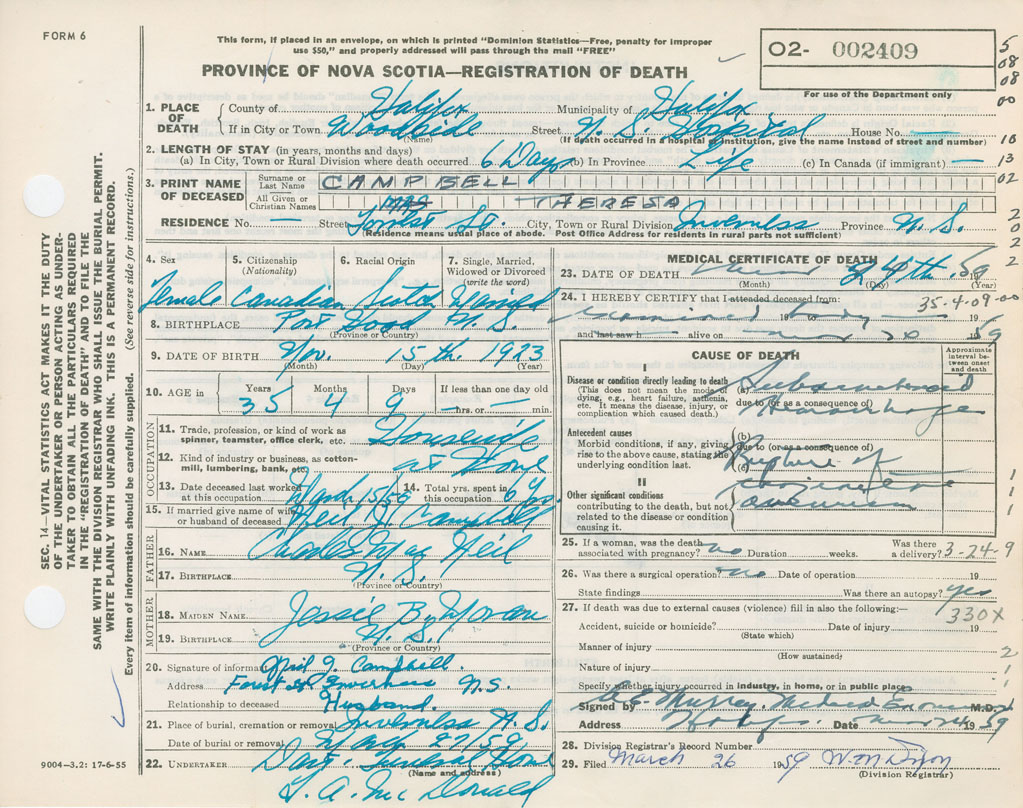 FORM 6
This form, if placed in an envelope, on which is printed "Dominion Statistics—Free, penalty for improper
use $50," and properly addressed will pass through the mail "FREE"
PROVINCE OF NOVA SCOTIA—REGISTRATION OF DEATH
O2- 002409
For use of the Department only
5
08
08
00
1. PLACE OF DEATH
County of Halifax Municipality of Halifax
If in City or Town Woodside Street N. S. Hospital House No. —
(Name) (If death occurred in a hospital or institution, give the name instead of street and number)
2. LENGTH OF STAY (in years, months and days)
(a) In City, Town or Rural Division where death occurred 6 Days (b) In Province Life (c) In Canada (if immigrant) —
3. PRINT NAME OF DECEASED
Surname or Last Name CAMPBELL
All Given or Christian Names THERESA
RESIDENCE No. — Street Forrest St. City, Town or Rural Division Inverness Province N. S.
(Residence means usual place of abode. Post Office Address for residents in rural parts not sufficient)
4. Sex 5. Citizenship (Nationality) 6. Racial Origin 7. Single, Married, Widowed or Divorced (write the word)
Female Canadian Scotch Married
8. BIRTHPLACE Port Hood N. S.
(Province or Country)
9. DATE OF BIRTH Nov. 15th. 1923
(Month) (Day) (Year)
10. AGE in Years Months Days If less than one day old
35 4 9 — hrs. or — min.
OCCUPATION
11. Trade, profession, or kind of work as spinner, teamster, office clerk, etc. Housewife
12. Kind of industry or business, as cotton-mill, lumbering, bank, etc. at Home
13. Date deceased last worked at this occupation March 15/59 14. Total yrs. spent in this occupation 6 Yrs.
15. If married give name of wife or husband of deceased Neil J. Campbell
FATHER
16. NAME Charles Mac Neil
17. BIRTHPLACE N. S.
(Province or Country)
MOTHER
18. MAIDEN NAME Jessie B.
19. BIRTHPLACE N. S.
(Province or Country)
20. Signature of informant Neil J. Campbell.
Address Forrest St Inverness N.S.
Relationship to deceased Husband.
21. Place of burial, cremation or removal Inverness N. S.
Date of burial or removal March 27/59
22. UNDERTAKER Funeral Home
(Name and address)
MEDICAL CERTIFICATE OF DEATH
23. DATE OF DEATH 24th 59
(Month) (Day) (Year)
24. I HEREBY CERTIFY that I attended deceased from: 35-4-09-00
examined body — 19
and last saw h alive on 1959
CAUSE OF DEATH
Approximate interval between onset and death
I
Disease or condition directly leading to death
(This does not mean the mode of dying, e.g., heart failure, asthenia, etc. It means the disease, injury, or complication which caused death.)
(a) Subarachnoid
due to (or as a consequence of)
Hemorrhage
Antecedent causes
Morbid conditions, if any, giving rise to the above cause, stating the underlying condition last.
(b)
due to (or as a consequence of)
(c) Rupture of
II
Other significant conditions contributing to the death, but not related to the disease or condition causing it.
congenital
aneurism
25. If a woman, was the death associated with pregnancy? no Duration weeks. Was there a delivery? 3-24-9
26. Was there a surgical operation? no Date of operation 19
State findings Was there an autopsy? yes
27. If death was due to external causes (violence) fill in also the following:— 330X
Accident, suicide or homicide? Date of injury 19
(State which)
Manner of injury
(How sustained)
Nature of injury
Specify whether injury occurred in industry, in home, or in public places
Signed by Murray Medical Examiner M.D.
Address Date 24 1959
28. Division Registrar's Record Number
29. Filed March 26 1959
(Division Registrar)
9004—3.2: 17-6-55
SEC. 14—VITAL STATISTICS ACT MAKES IT THE DUTY
OF THE UNDERTAKER OR PERSON ACTING AS UNDER-
TAKER TO OBTAIN ALL THE PARTICULARS REQUIRED
IN THE "REGISTRATION OF DEATH" AND FILE THE
SAME WITH THE DIVISION REGISTRAR WHO SHALL ISSUE THE BURIAL PERMIT.
WRITE PLAINLY WITH UNFADING INK. THIS IS A PERMANENT RECORD.
Every item of information should be carefully supplied. (See reverse side for instructions.)